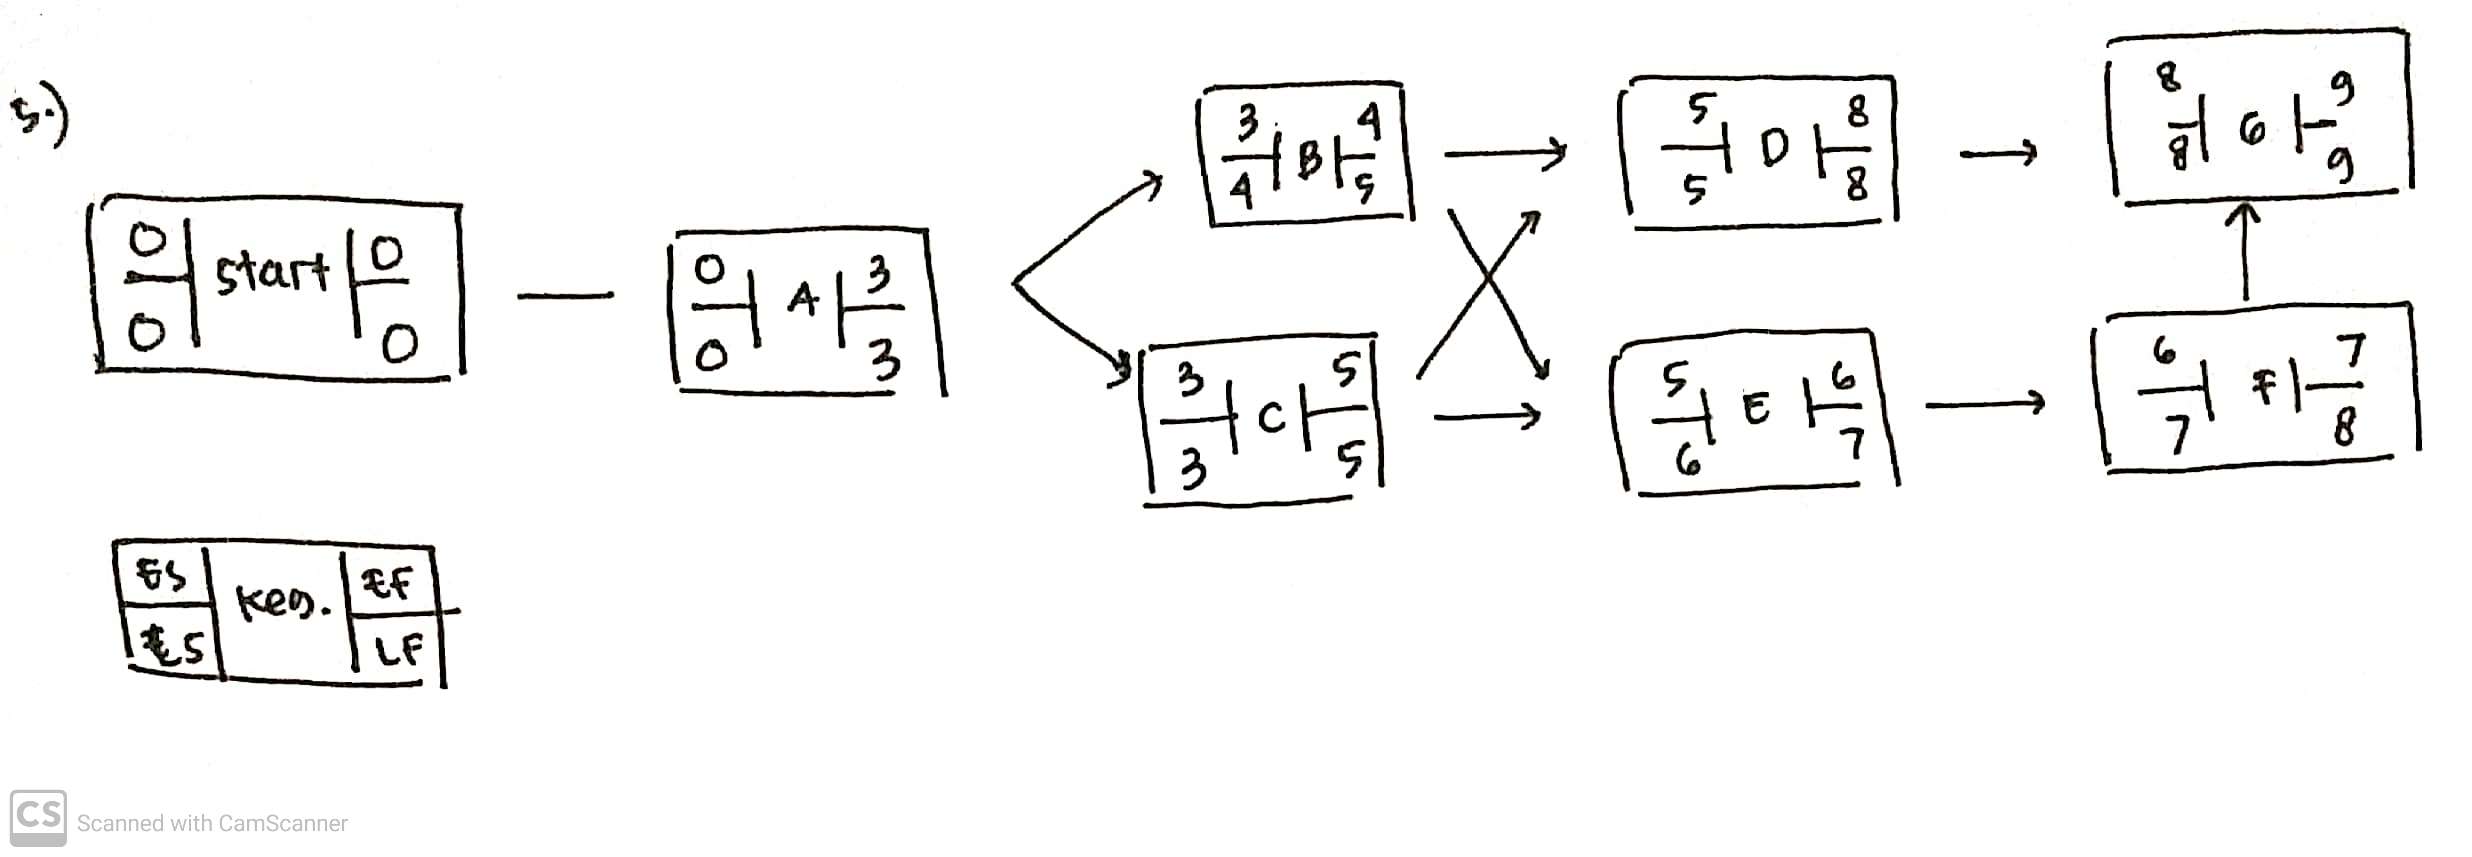 5.)
0 start 0
0 0
0 A 3
0 3
3 B 4
4 5
3 C 5
3 5
5 D 8
5 8
5 E 6
6 7
8 G 9
8 9
6 F 7
7 8
ES Keg. EF
LS LF
CS Scanned with CamScanner